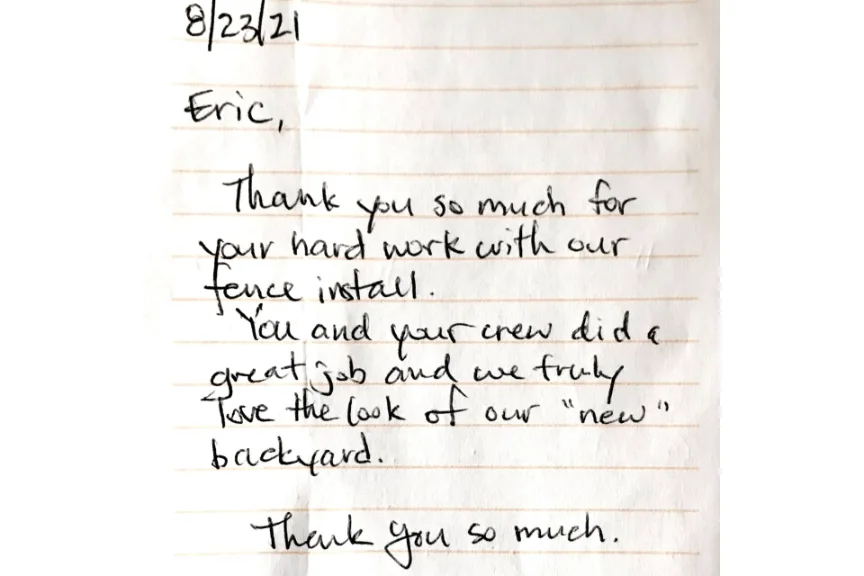 8/23/21
Eric,
Thank you so much for
your hard work with our
fence install.
You and your crew did a
great job and we truly
love the look of our "new"
backyard.
Thank you so much.